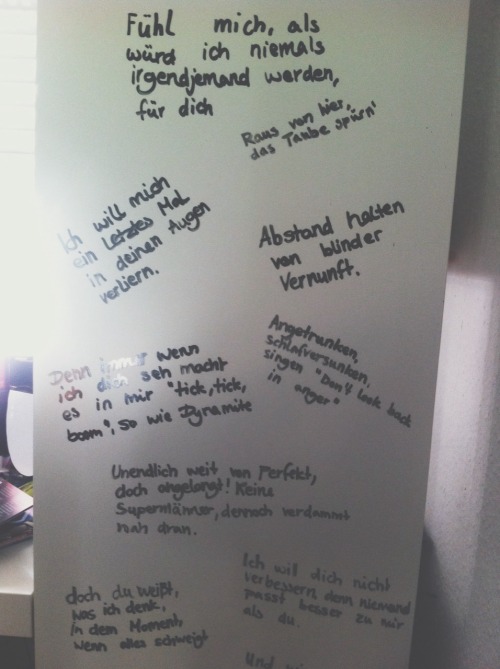 Fühl mich, als
würd ich niemals
irgendjemand werden,
für dich
Raus von hier,
das Taube spürn'
Ich will mich
ein letztes Mal
in deinen Augen
verliern.
Abstand halten
von blinder
Vernunft.
Denn immer wenn
ich dich seh macht
es in mir "tick, tick,
boom", so wie Dynamite
Angetrunken,
schlafversunken,
singen "Don't look back
in anger"
Unendlich weit von Perfekt,
doch angelangt! Keine
Supermänner, dennoch verdammt
nah dran.
Ich will dich nicht
verbessern, denn niemand
passt besser zu mir
als du.
doch du weißt,
was ich denk,
in dem Moment,
wenn alles schweigt
Und